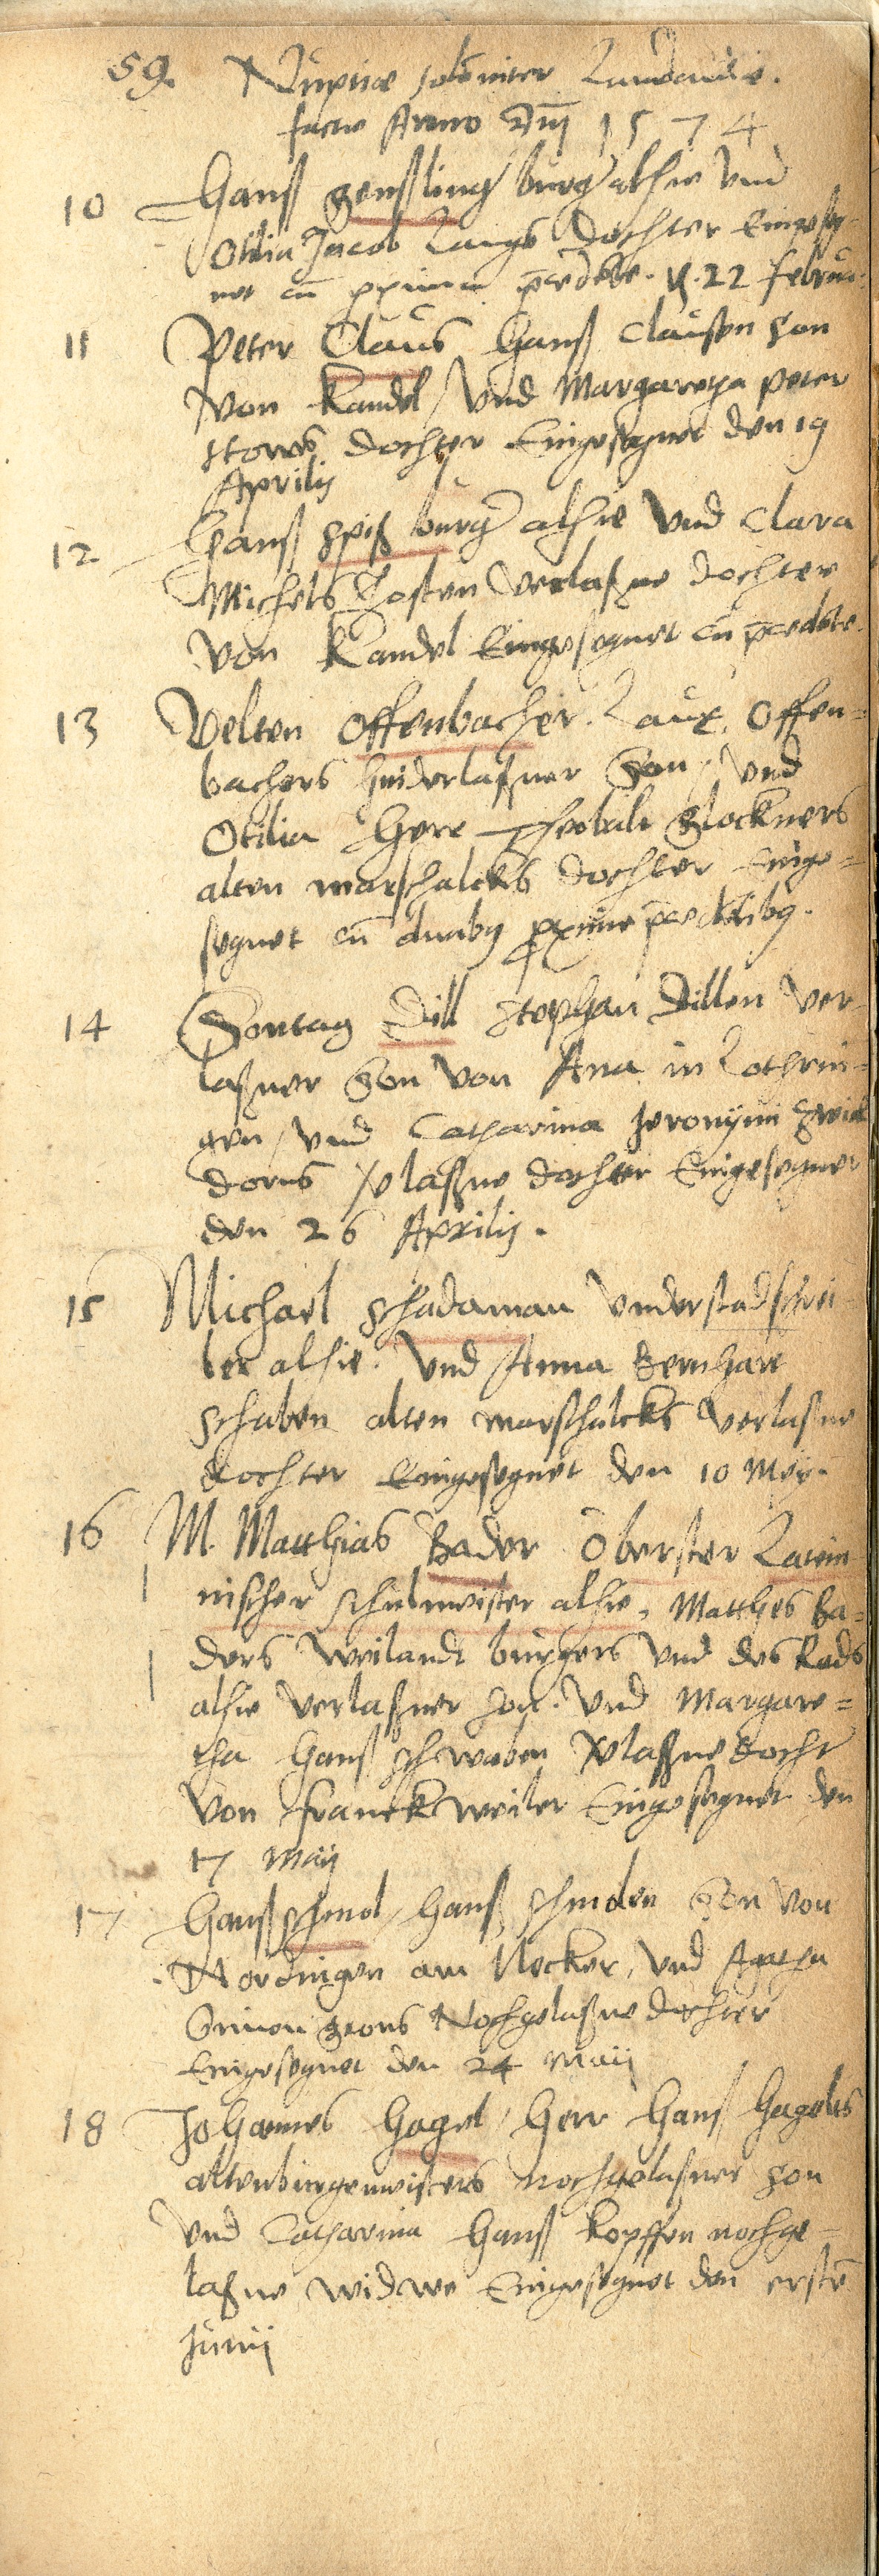 59. Nuptiae solēniter Landauiae.
factae Anno Dnj 1574
10 Hanß genßling burg alhie vnd
Otilia Jacob Langs Dochter Eingeseg-
net cū praecedēte. 22 februa:
11 Peter Claus Hanß Clausen son
Von Kandel / Vnd Margaretha Peter
dochter Eingesegnet den 19
Aprilis
12 Hanß spiß burg alhie Vnd Clara
Michels Josten Verlaßne dochter
Von Kandel Eingesegnet cū praecedēte.
13 Velten Offenbacher. Laux Offen=
bachers hinderlaßner Son, Vnd
Otilia Herr Theobalt glockners
alten marschalcks dochter Einge=
segnet cū duabus proxime praecedētibus.
14 Sontag Dill Stephan Dillen Ver-
laßner Son Von Ana in Lothrin=
gen / Vnd Catharina Jeronymi
dorns Verlaßne dochter Eingesegnet
den 26 Aprilis.
15 Michael Schadaman Vnderstadschrei
ber alhie. Vnd Anna Bernhart
Schaben alten marschalcks Verlaßne
dochter Eingesegnet den 10 Meij.
16 M. Matthias Bader Oberster Latein
nischer schulmeister alhie, Matthes Ba=
ders Weilandt burgers Vnd des Rads
alhie Verlaßner son. Vnd Margare=
tha Hanß Schwaben Verlaßne docht
Von Franckweiler Eingesegnet den
17 Maij
17 Hanß Schmol / Hanß Son Von
Nördingen am Necker, Vnd Agatha
Simon Nochgelaßne dochter
Eingesegnet den 24 Maij
18 Johannes Hagel / Herr Hanß Hagels
altenburgemeisters nochgelaßner son
Vnd Catharina Hanß Kopffen nochge=
laßne widwe Eingesegnet den erstē
Junij